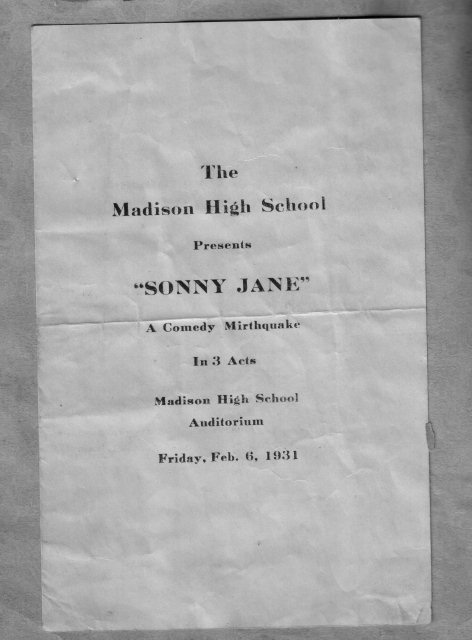 The
Madison High School
Presents
“SONNY JANE”
A Comedy Mirthquake
In 3 Acts
Madison High School
Auditorium
Friday, Feb. 6, 1931